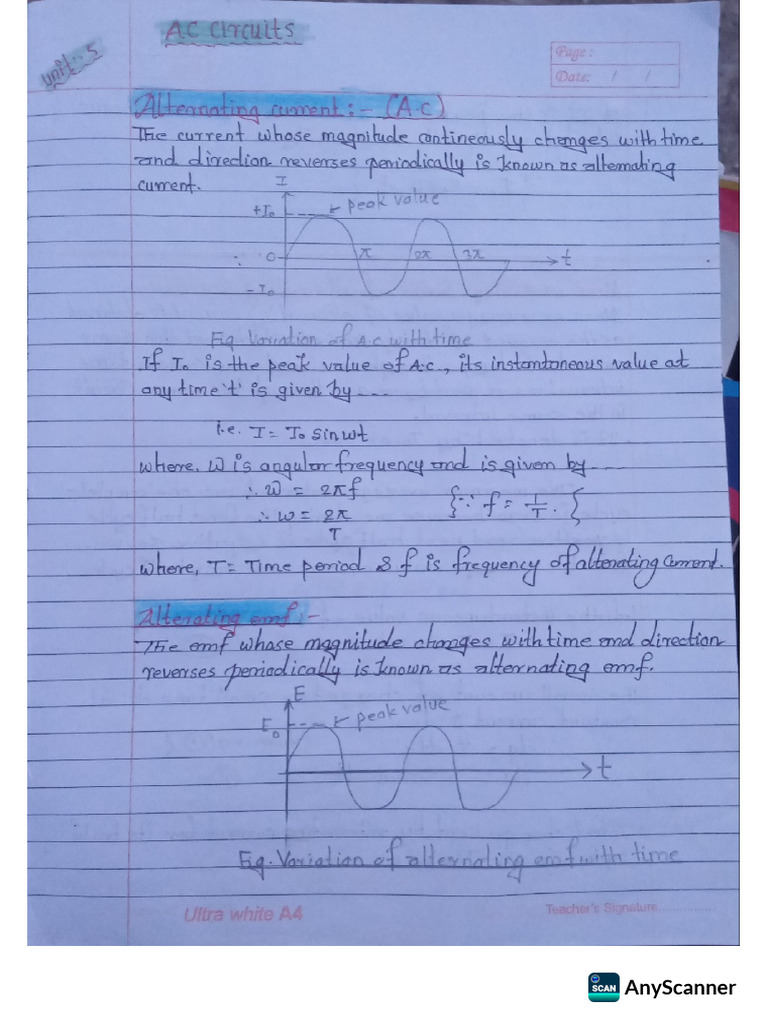 A.C Circuits
Unit:- 5
Page:
Date: / /
Alternating current:- (A.c)
The current whose magnitude contineously changes with time
and direction reverses periodically is known as alternating
current.
I
+I₀
peak value
0
π 2π 3π
t
-I₀
Fig. Variation of A.C with time
If I₀ is the peak value of A.C., its instantaneous value at
any time 't' is given by ---
i.e. I = I₀ sinwt
where, W is angular frequency and is given by ---
∴ w = 2πf
{∵ f = 1/T. }
∴ w = 2π/T
where, T = Time period & f is frequency of alternating current.
Alterating emf:-
The emf whose magnitude changes with time and direction
reverses periodically is known as alternating emf.
E
E₀
peak value
t
Fig. Variation of alternating emf with time
Ultra white A4
Teacher's Signature...............
SCAN
AnyScanner